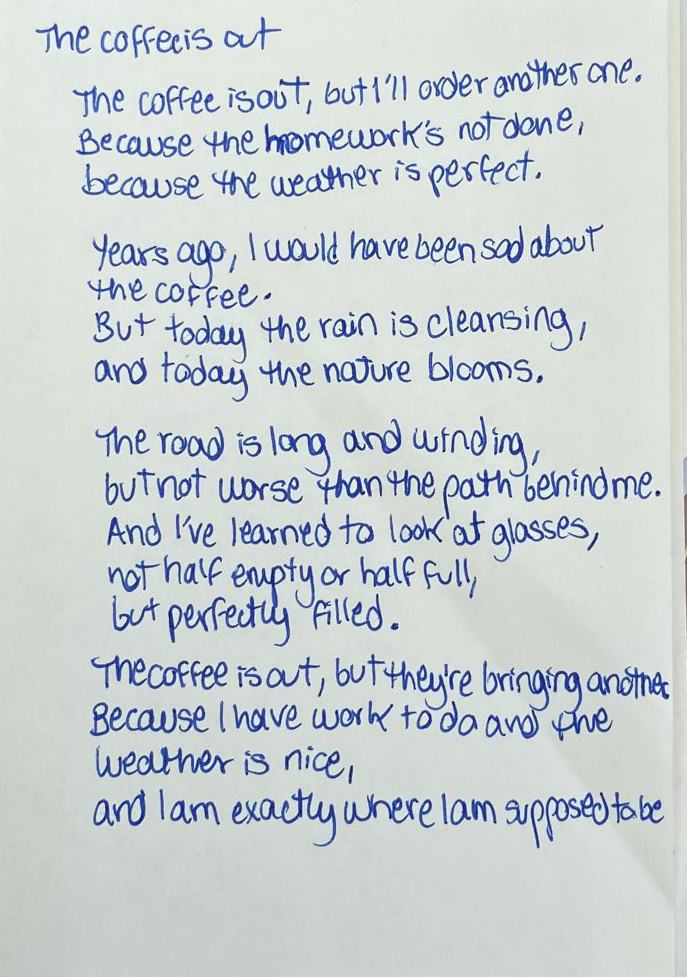 The coffee is out
The coffee is out, but I'll order another one.
Because the homework's not done,
because the weather is perfect.
Years ago, I would have been sad about
the coffee.
But today the rain is cleansing,
and today the nature blooms.
The road is long and winding,
but not worse than the path behind me.
And I've learned to look at glasses,
not half empty or half full,
but perfectly filled.
The coffee is out, but they're bringing another
Because I have work to do and the
weather is nice,
and I am exactly where I am supposed to be